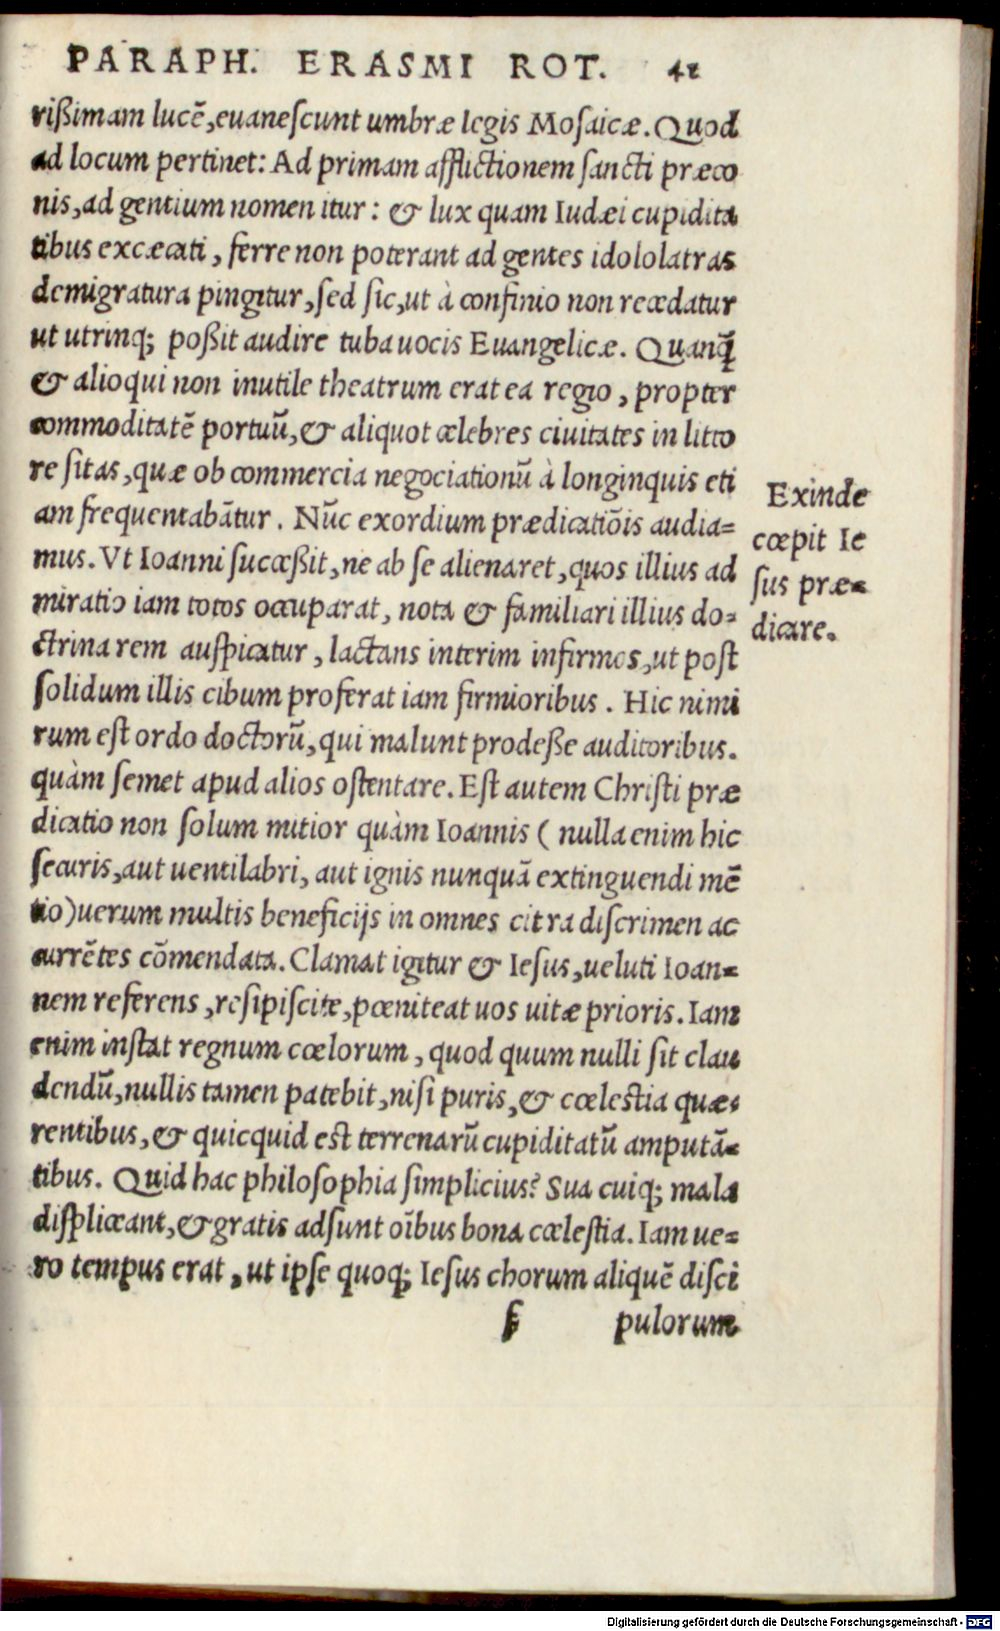 PARAPH. ERASMI ROT. 41
rißimam lucē, euanescunt umbræ legis Mosaicæ. Quod
ad locum pertinet: Ad primam afflictionem sancti præco
nis, ad gentium nomen itur: & lux quam Iudæi cupidita
tibus excæcati, ferre non poterant ad gentes idololatras
demigratura pingitur, sed sic, ut à confinio non recedatur
ut utrinq; poßit audire tuba uocis Euangelicæ. Quanq̃
& alioqui non inutile theatrum erat ea regio, propter
commoditatē portuũ, & aliquot celebres ciuitates in litto
re sitas, quæ ob commercia negociationũ à longinquis eti
am frequentabãtur. Nũc exordium prædicatiõis audia=
mus. Vt Ioanni succeßit, ne ab se alienaret, quos illius ad
miratio iam totos occuparat, nota & familiari illius do=
ctrina rem auspicatur, lactans interim infirmos, ut post
solidum illis cibum proferat iam firmioribus. Hic nimi
rum est ordo doctorũ, qui malunt prodeße auditoribus.
quàm semet apud alios ostentare. Est autem Christi præ
dicatio non solum mitior quàm Ioannis ( nulla enim hic
securis, aut uentilabri, aut ignis nunquã extinguendi mē
tio) uerum multis beneficijs in omnes citra discrimen ac
currētes cõmendata. Clamat igitur & Iesus, ueluti Ioan=
nem referens, resipiscite, pœniteat uos uitæ prioris. Iam
enim instat regnum cœlorum, quod quum nulli sit clau
dendũ, nullis tamen patebit, nisi puris, & cœlestia quæ=
rentibus, & quicquid est terrenarũ cupiditatũ amputã=
tibus. Quid hac philosophia simplicius? Sua cuiq; mala
displiceant, & gratis adsunt oĩbus bona cœlestia. Iam ue=
ro tempus erat, ut ipse quoq; Iesus chorum aliquē disci
f pulorum
Exinde
cœpit Ie
sus præ=
dicare.
Digitalisierung gefördert durch die Deutsche Forschungsgemeinschaft - DFG